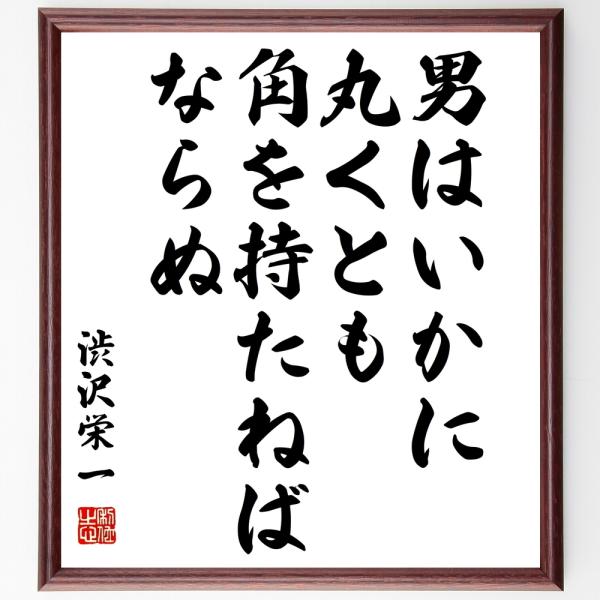 男はいかに
丸くとも
角を持たねば
ならぬ
渋沢栄一